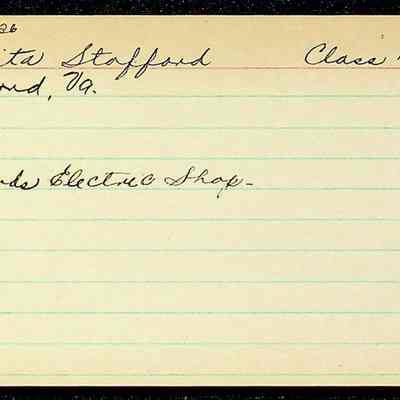 26
ita Stafford Class
ond, Va.
ds Electric Shop-